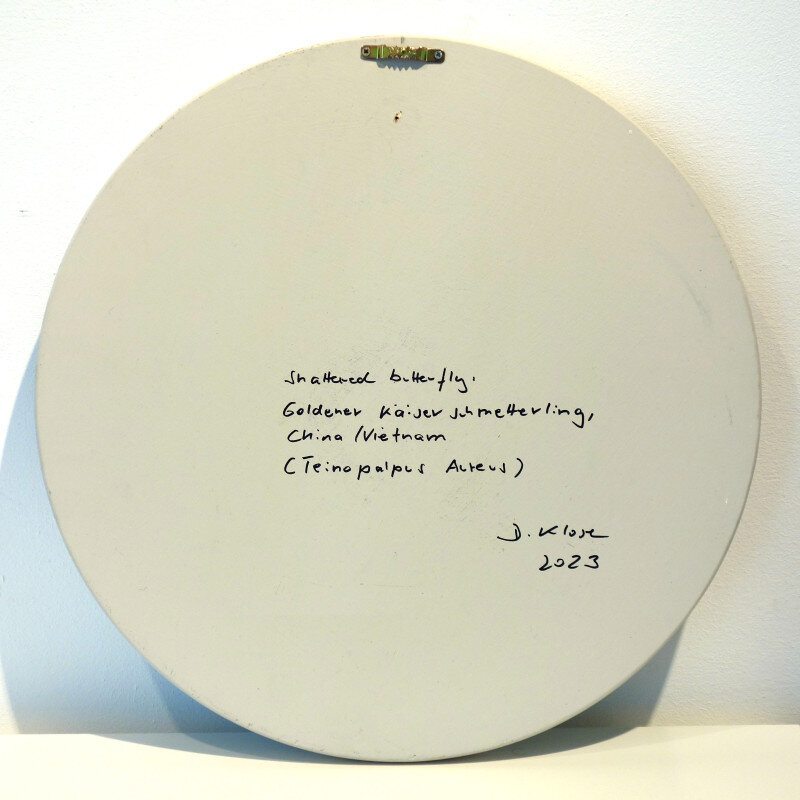 Shattered butterfly.
Goldener Kaiserschmetterling,
China/Vietnam
(Teinopalpus Aureus)
D. Klose
2023